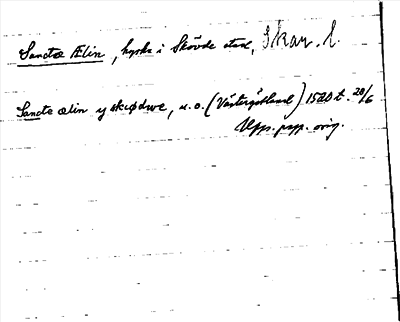 Sanctæ Ælin, kyrka i Skövde stad, Skar. l.
Sancte ælin y skødwe, u.o. (Västergötland) 1520 t. 20/6
Upps. papp. orig.